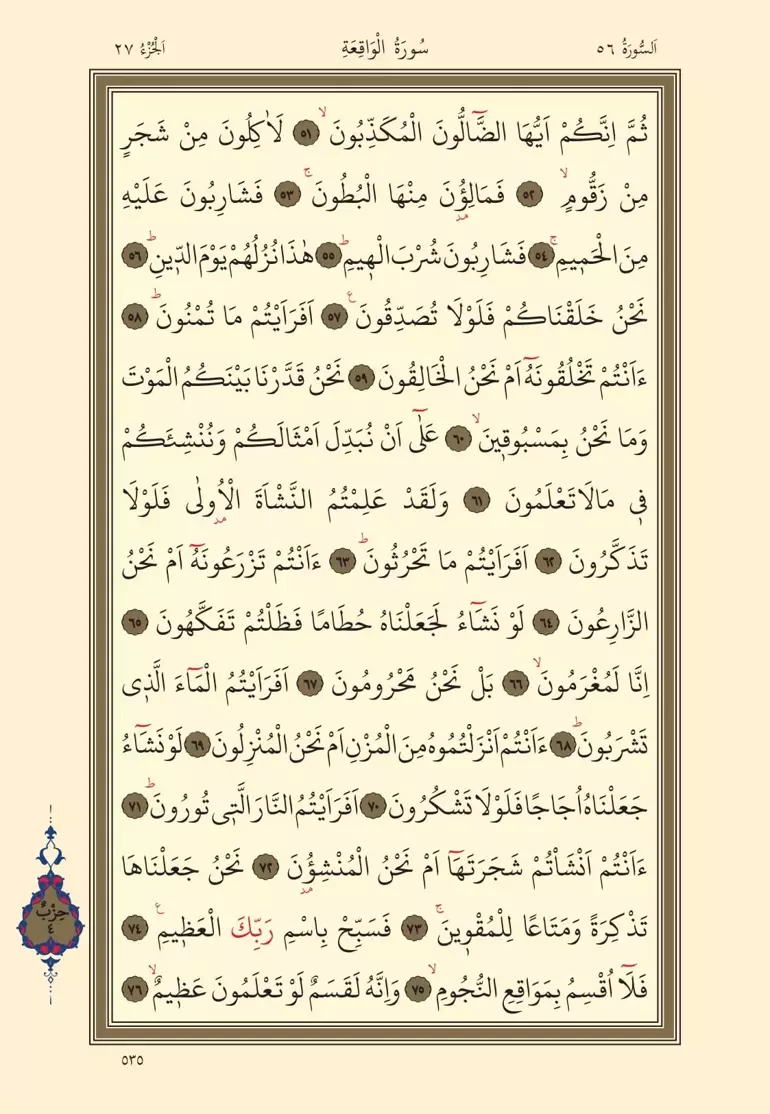 اَلسُّورَةُ ٥٦ سُورَةُ الْوَاقِعَةِ اَلْجُزْءُ ٢٧
ثُمَّ اِنَّكُمْ اَيُّهَا الضَّٓالُّونَ الْمُكَذِّبُونَۙ ﴿٥١﴾ لَاٰكِلُونَ مِنْ شَجَرٍ
مِنْ زَقُّومٍۙ ﴿٥٢﴾ فَمَالِؤُ۫نَ مِنْهَا الْبُطُونَۚ ﴿٥٣﴾ فَشَارِبُونَ عَلَيْهِ
مِنَ الْحَم۪يمِۚ ﴿٥٤﴾ فَشَارِبُونَ شُرْبَ الْه۪يمِۜ ﴿٥٥﴾ هٰذَا نُزُلُهُمْ يَوْمَ الدّ۪ينِۜ ﴿٥٦﴾
نَحْنُ خَلَقْنَاكُمْ فَلَوْلَا تُصَدِّقُونَ ﴿٥٧﴾ اَفَرَاَيْتُمْ مَا تُمْنُونَۜ ﴿٥٨﴾
ءَاَنْتُمْ تَخْلُقُونَهُٓ اَمْ نَحْنُ الْخَالِقُونَ ﴿٥٩﴾ نَحْنُ قَدَّرْنَا بَيْنَكُمُ الْمَوْتَ
وَمَا نَحْنُ بِمَسْبُوق۪ينَۙ ﴿٦٠﴾ عَلٰٓى اَنْ نُبَدِّلَ اَمْثَالَكُمْ وَنُنْشِئَكُمْ
ف۪ي مَا لَا تَعْلَمُونَ ﴿٦١﴾ وَلَقَدْ عَلِمْتُمُ النَّشْاَةَ الْاُو۫لٰى فَلَوْلَا
تَذَكَّرُونَ ﴿٦٢﴾ اَفَرَاَيْتُمْ مَا تَحْرُثُونَۜ ﴿٦٣﴾ ءَاَنْتُمْ تَزْرَعُونَهُٓ اَمْ نَحْنُ
الزَّارِعُونَ ﴿٦٤﴾ لَوْ نَشَٓاءُ لَجَعَلْنَاهُ حُطَامًا فَظَلْتُمْ تَفَكَّهُونَ ﴿٦٥﴾
اِنَّا لَمُغْرَمُونَۙ ﴿٦٦﴾ بَلْ نَحْنُ مَحْرُومُونَ ﴿٦٧﴾ اَفَرَاَيْتُمُ الْمَٓاءَ الَّذ۪ي
تَشْرَبُونَۜ ﴿٦٨﴾ ءَاَنْتُمْ اَنْزَلْتُمُوهُ مِنَ الْمُزْنِ اَمْ نَحْنُ الْمُنْزِلُونَ ﴿٦٩﴾ لَوْ نَشَٓاءُ
جَعَلْنَاهُ اُجَاجًا فَلَوْلَا تَشْكُرُونَ ﴿٧٠﴾ اَفَرَاَيْتُمُ النَّارَ الَّت۪ي تُورُونَۜ ﴿٧١﴾
ءَاَنْتُمْ اَنْشَأْتُمْ شَجَرَتَهَٓا اَمْ نَحْنُ الْمُنْشِؤُ۫نَ ﴿٧٢﴾ نَحْنُ جَعَلْنَاهَا
تَذْكِرَةً وَمَتَاعًا لِلْمُقْو۪ينَۚ ﴿٧٣﴾ فَسَبِّحْ بِاسْمِ رَبِّكَ الْعَظ۪يمِ ﴿٧٤﴾
حِزْبٌ
٤
فَلَٓا اُقْسِمُ بِمَوَاقِعِ النُّجُومِۙ ﴿٧٥﴾ وَاِنَّهُ لَقَسَمٌ لَوْ تَعْلَمُونَ عَظ۪يمٌۙ ﴿٧٦﴾
٥٣٥